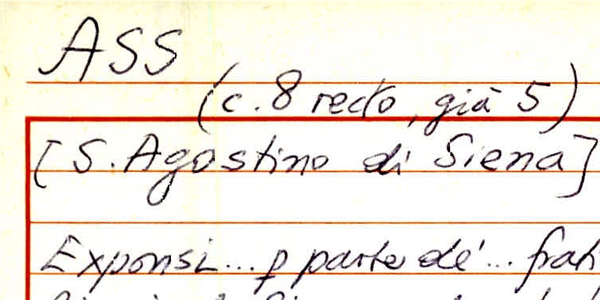 ASS
(c. 8 recto, già 5)
[S. Agostino di Siena]
Exponsi... p parte de'... frati